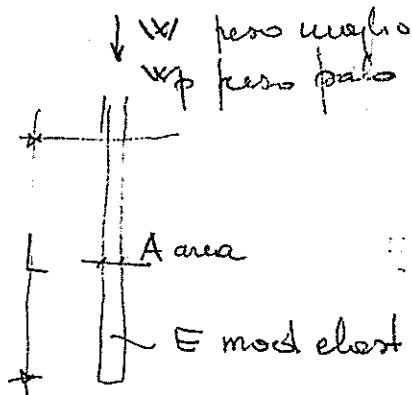 W peso maglio
Wp peso palo
A area
L
E mod elast